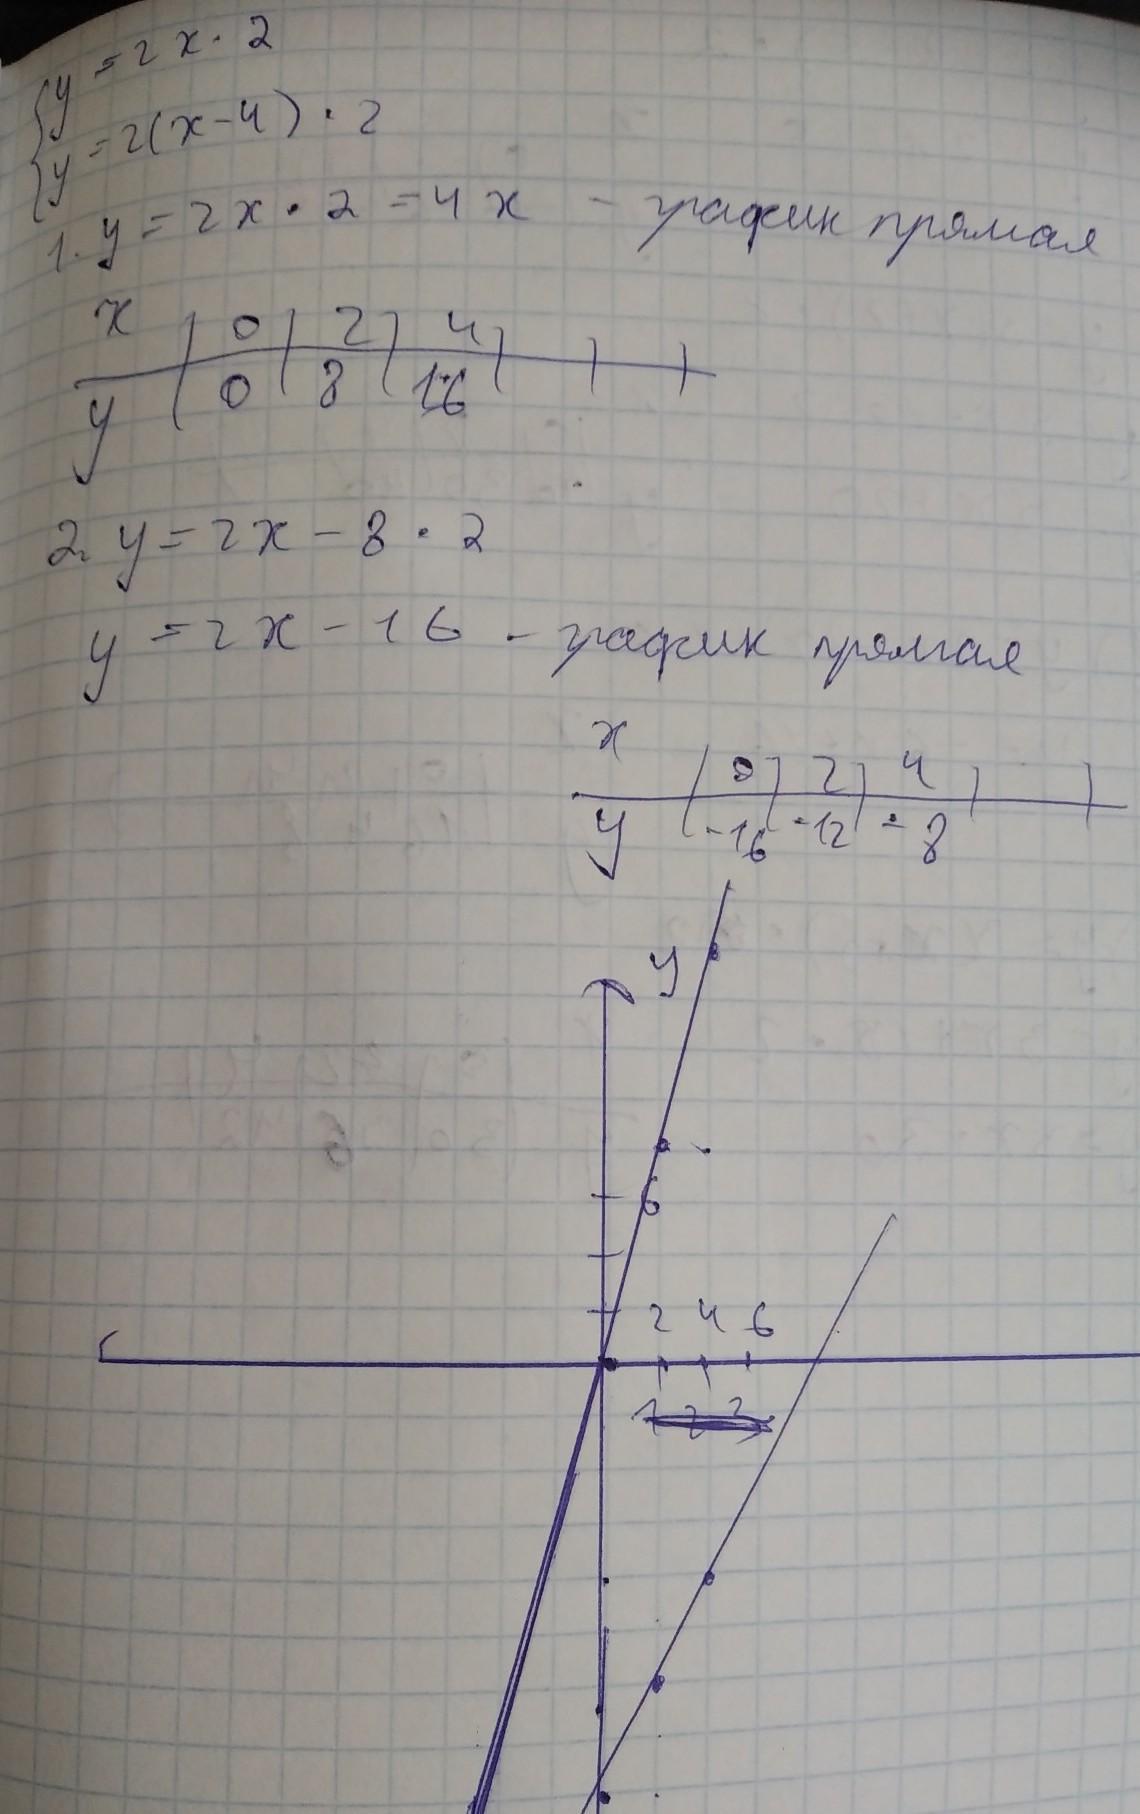 {y = 2x · 2
{y = 2(x-4) · 2
1. y = 2x · 2 = 4x - график прямая
x | 0 | 2 | 4 | | |
y | 0 | 8 | 16
2. y = 2x - 8 · 2
y = 2x - 16 - график прямая
x | 0 | 2 | 4 | |
y | -16 | -12 | -8
y
6
2 4 6
1 2 3